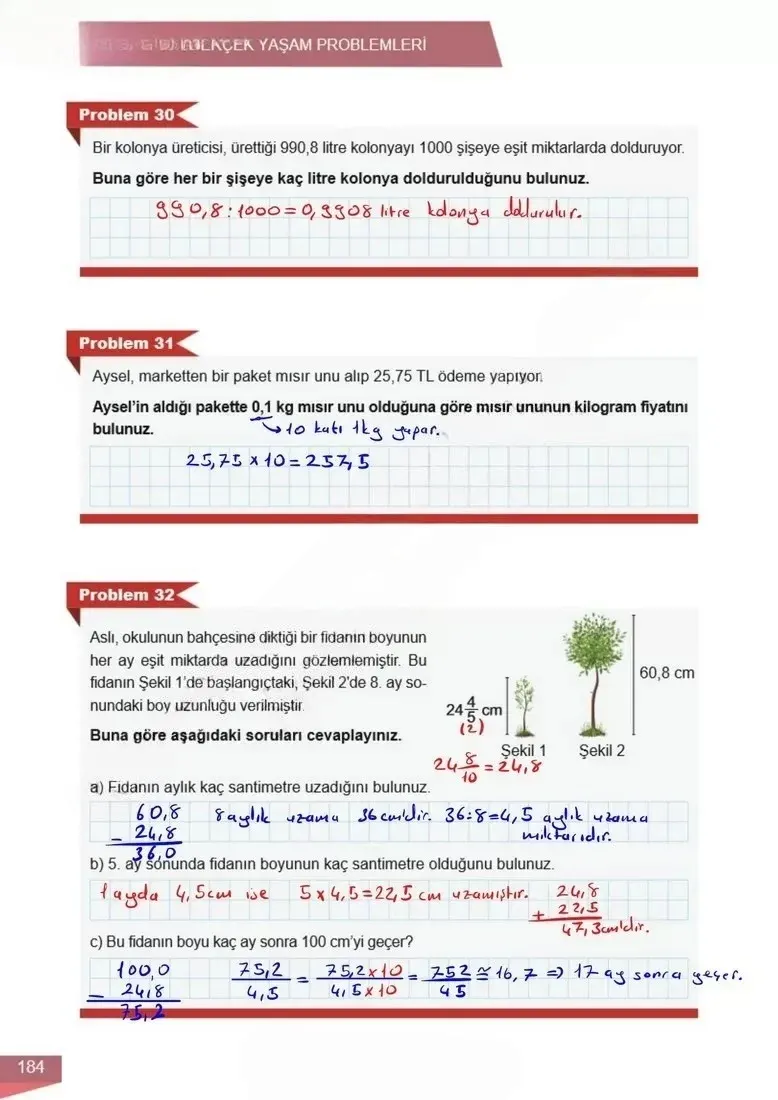 YAŞAM PROBLEMLERİ
Problem 30
Bir kolonya üreticisi, ürettiği 990,8 litre kolonyayı 1000 şişeye eşit miktarlarda dolduruyor.
Buna göre her bir şişeye kaç litre kolonya doldurulduğunu bulunuz.
990,8 : 1000 = 0,9908 litre kolonya doldurulur.
Problem 31
Aysel, marketten bir paket mısır unu alıp 25,75 TL ödeme yapıyor.
Aysel'in aldığı pakette 0,1 kg mısır unu olduğuna göre mısır ununun kilogram fiyatını
bulunuz.
↳ 10 katı 1kg yapar.
25,75 x 10 = 257,5
Problem 32
Aslı, okulunun bahçesine diktiği bir fidanın boyunun
her ay eşit miktarda uzadığını gözlemlemiştir. Bu
fidanın Şekil 1'de başlangıçtaki, Şekil 2'de 8. ay so-
nundaki boy uzunluğu verilmiştir.
Buna göre aşağıdaki soruları cevaplayınız.
24 4/5 cm
(2)
24 8/10 = 24,8
60,8 cm
Şekil 1
Şekil 2
a) Fidanın aylık kaç santimetre uzadığını bulunuz.
60,8
- 24,8
36,0
8 aylık uzama 36 cm'dir. 36:8=4,5 aylık uzama
miktarıdır.
b) 5. ay sonunda fidanın boyunun kaç santimetre olduğunu bulunuz.
1 ayda 4,5cm ise 5 x 4,5 = 22,5 cm uzamıştır.
24,8
+ 22,5
47,3cm'dir.
c) Bu fidanın boyu kaç ay sonra 100 cm'yi geçer?
100,0
- 24,8
75,2
75,2/4,5 = 75,2x10/4,5x10 = 752/45 ≅ 16,7 ⇒ 17 ay sonra geçer.
184